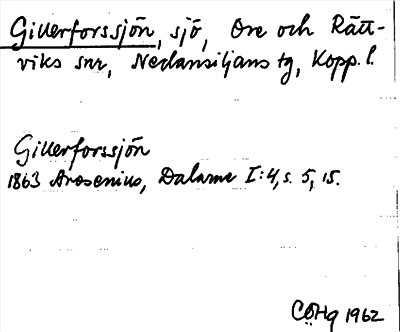 Gillerforssjön, sjö, Ore och Rätt-
viks snr, Nedansiljans tg, Kopp. l.
Gillerforssjön
1863 Arosenius, Dalarne I:4, s. 5, 15.
CÖHg 1962